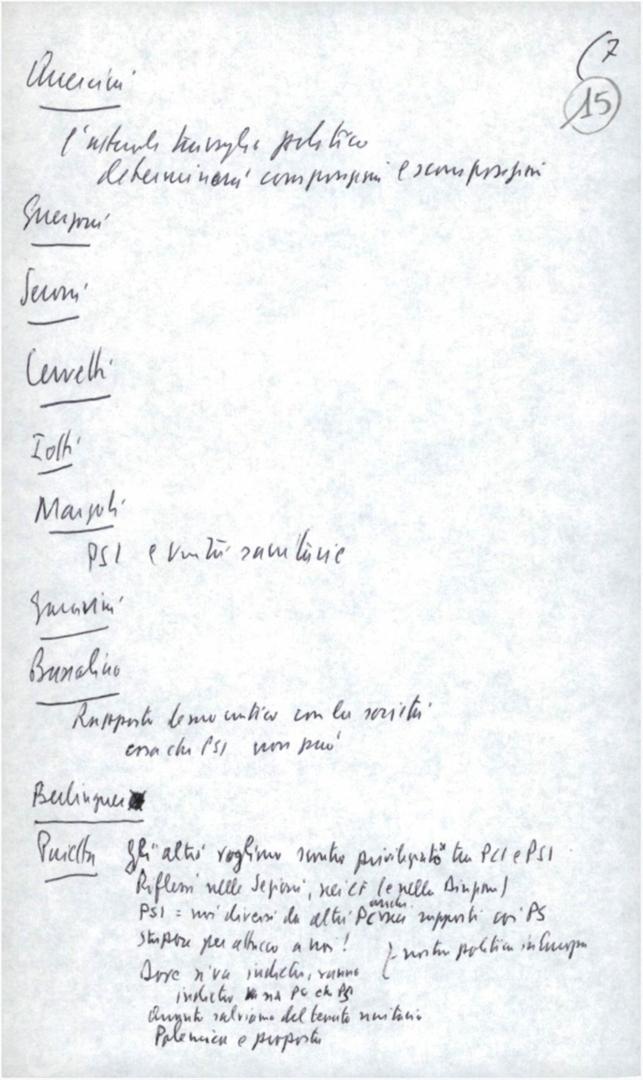 (7
15
Quercini
l'attuale travaglio politico
determinerà composizioni e scomposizioni
Guerzoni
Seroni
Cervetti
Iotti
Margheri
PSI e unità sanitarie
Garavini
Bufalini
Rapporto democratico con la società
cosa che PSI non può
Berlinguer
Pajetta
Gli altri vogliono scontro privilegiato tra PCI e PSI
Riflessi nelle Sezioni, nei CF (e nella Direzione)
PSI = noi diversi da altri PC anche nei rapporti coi PS
stupore per attacco a noi!
} nostra politica in Europa
Dove si va indietro, vanno
indietro sia PC che PS
Quanto salviamo del tessuto unitario
Polemica e proposta